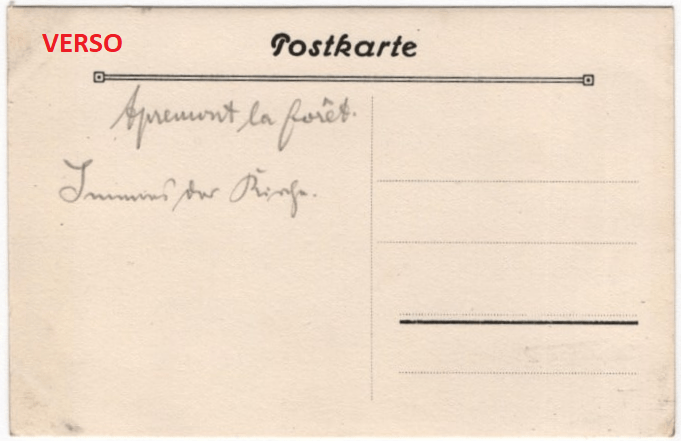 VERSO
Postkarte
Apremont la forêt.
Inneres der Kirche.